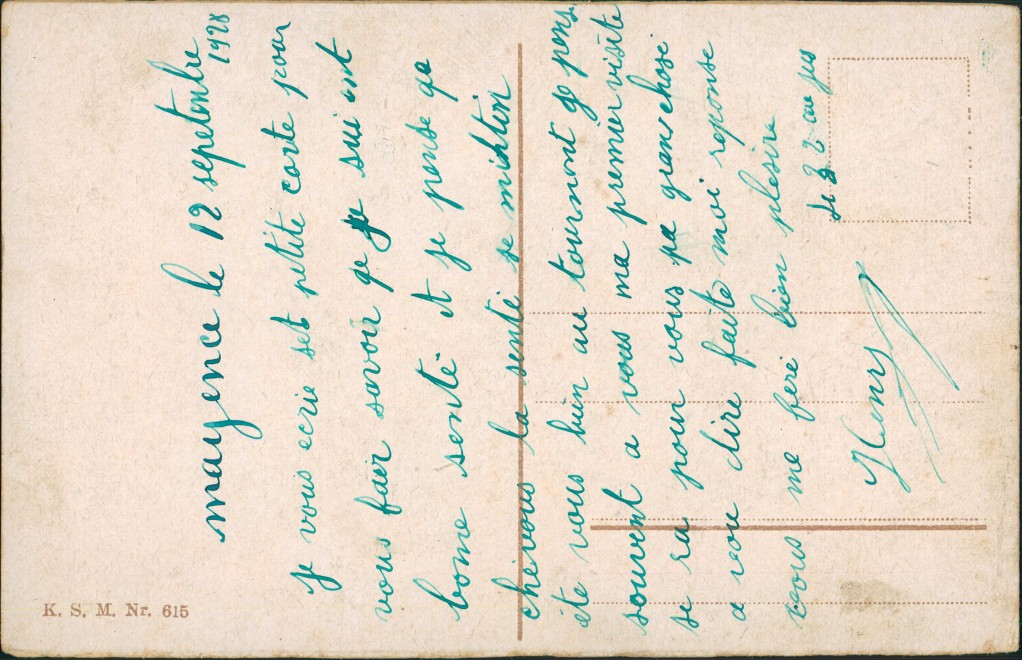 mayence le 12 sepetembre
1928
je vous ecrie set petite carte pour
vous fair savoir qe je sui ent
bonne senté et je pense qe
chévous la senté se mintien
ète vous bien au tournont ge pens
souvent a vous ma premier visite
se ra pour vous pa grans chose
a vou dire faite moi reponse
vous me feré bien plésire
Henry
K. S. M. Nr. 615